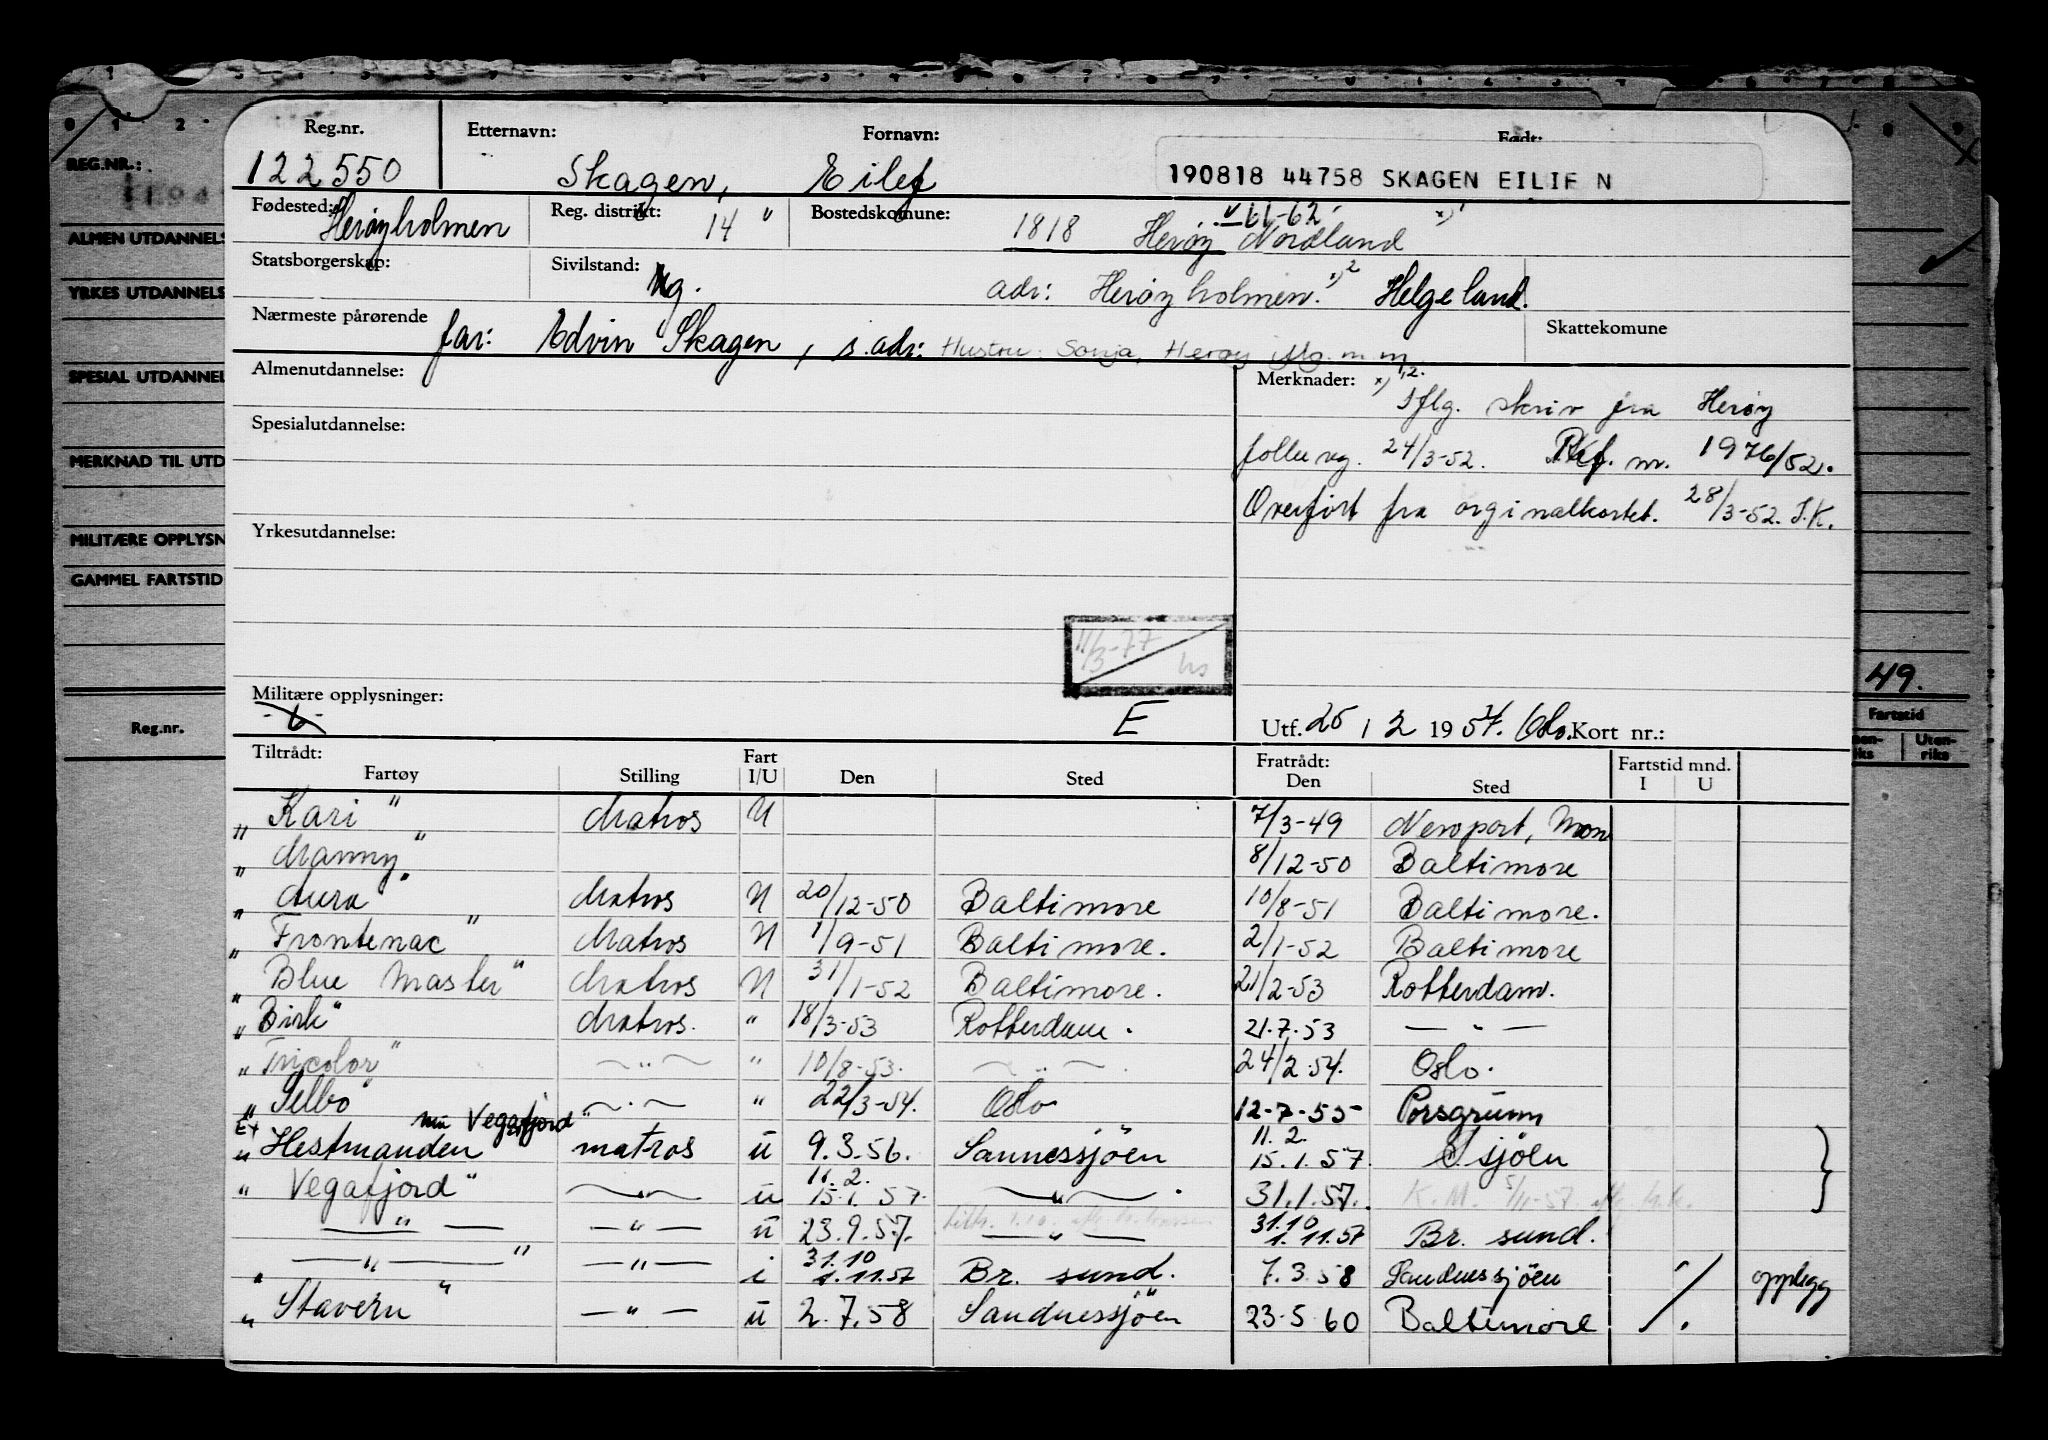 REG.NR.:
ALMEN UTDANNELS
YRKES UTDANNELS
SPESIAL UTDANNEL
MERKNAD TIL UTD
MILITÆRE OPPLYSN
GAMMEL FARTSTID
Reg.nr.
49.
Fartstid
Uten-
riks
Reg.nr. Etternavn: Fornavn: Født:
122550 Skagen, Eilef 190818 44758 SKAGEN EILIF N
Fødested: Herøyholmen Reg. distrikt: 14 " Bostedskomune: 1818 Herøy Nordland
61-62
Statsborgerskap: Sivilstand: Ug. adr: Herøyholmen. Helgeland.
Nærmeste pårørende far: Edvin Skagen, s. adr: Hustru Sonja, Herøy Skattekomune
Almenutdannelse: Merknader: x) 1,2.
Iflg. skriv fra Herøy
Spesialutdannelse:
folkereg. 24/3-52. Ref. nr. 1976/52.
Overført fra orginalkortet. 28/3-52. I.K.
Yrkesutdannelse:
11/3-77
Militære opplysninger: E Utf. 25 / 2 1954. Oslo. Kort nr.:
Tiltrådt: Fratrådt: Fartstid mnd.
Fartøy Stilling Fart I/U Den Sted Den Sted I U
" Kari " Matros U 7/3-49 Newport, Mon
" Manny " 8/12-50 Baltimore
" Aura " Matros U 20/12-50 Baltimore 10/8-51 Baltimore.
" Frontenac " Matros U 1/9-51 Baltimore. 2/1-52 Baltimore
" Blue Master " Matros U 31/1-52 Baltimore. 21/2-53 Rotterdam.
" Birk " Matros. " 18/3-53 Rotterdam. 21.7.53 — " —
" Tricolor " — " — " 10/8-53. — " — 24/2.54. Oslo.
" Selbo " — " — " 22/3-54. Oslo 12-7-55 Porsgrunn
Ex nu Vegafjord " 11. 2.
" Hestmanden matros u 9.3.56. Sannessjöen 15.1.57. S.sjöen
11. 2.
" Vegafjord " — " — u 15.1.57. — " — 31.1.57. K.M. 5/11-57.
— " — — " — u 23.9.57. — " — 31.10 1.11.57 Br. sund.
— " — " — " — i 31.10 1.11.57 Br. sund. 7.3.58 Sandnessjöen opplegg
" Stavern " — " — u 2.7.58 Sandnessjöen 23.5.60 Baltimore